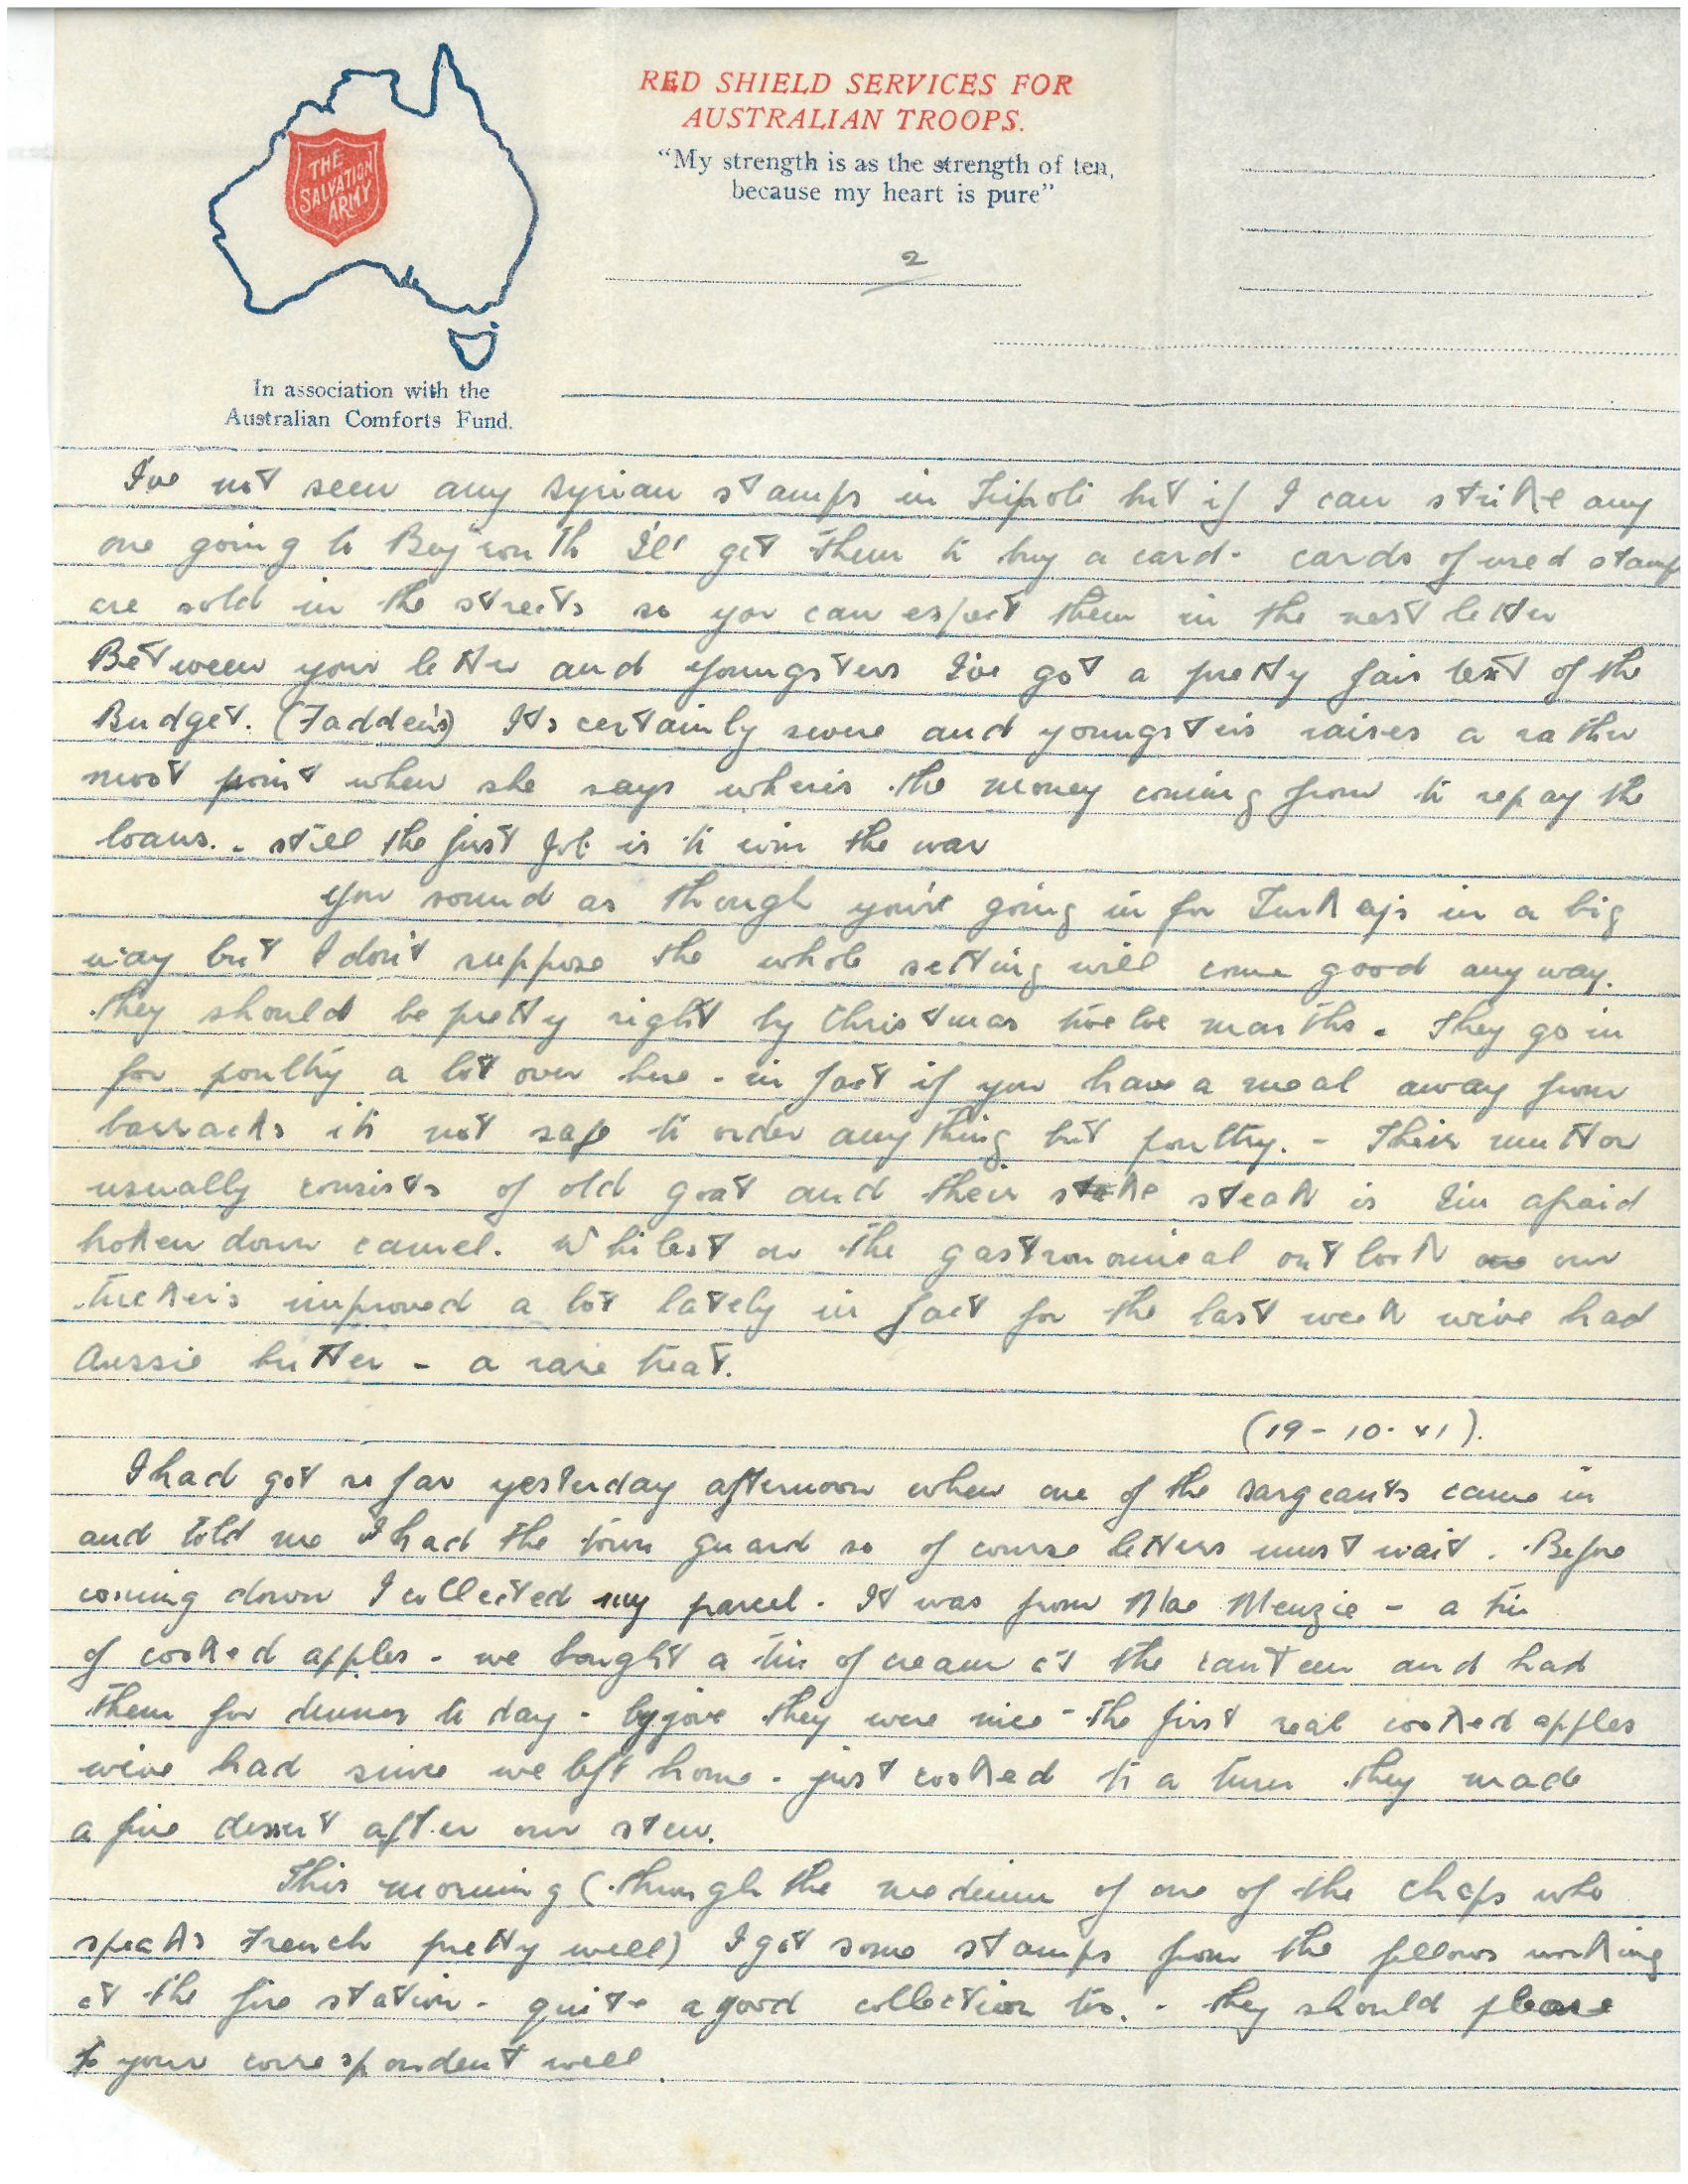 THE
SALVATION
ARMY
In association with the
Australian Comforts Fund.
RED SHIELD SERVICES FOR
AUSTRALIAN TROOPS.
"My strength is as the strength of ten,
because my heart is pure"
2
I've not seen any Syrian stamps in Tripoli but if I can strike any
one going to I'll get them to buy a card - cards of used stamp
are sold in the streets so you can expect them in the next letter
Between your letter and youngsters I've got a pretty fair text of the
Budget. (Fadden's) Its certainly severe and youngster's raises a rather
moot point when she says where's the money coming from to repay the
loans. - still the first job is to win the war
You sound as though you're going in for Turkeys in a big
way but I don't suppose the whole setting will come good anyway.
they should be pretty right by Christmas twelve months. They go in
for poultry a lot over here - in fact if you have a meal away from
barracks it's not safe to order anything but poultry. - Their mutton
usually consists of old goat and their steak is I'm afraid
broken down camel. Whilest on the gastronomical outlook our
tucker's improved a lot lately in fact for the last week we've had
Aussie butter - a rare treat.
(19-10-41).
I had got so far yesterday afternoon when one of the sargeants came in
and told me I had the town guard so of course letters must wait. Before
coming down I collected my parcel. It was from Mac Menzie - a tin
of cooked apples - we bought a tin of cream at the canteen and had
them for dinner to day - by jove they were nice - the first real cooked apples
we've had since we left home - just cooked to a turn they made
a fine dessert after our stew.
This morning (through the medium of one of the chaps who
speaks French pretty well) I got some stamps from the fellows working
at the fire station - quite a good collection too. - they should please
to your correspondent well.